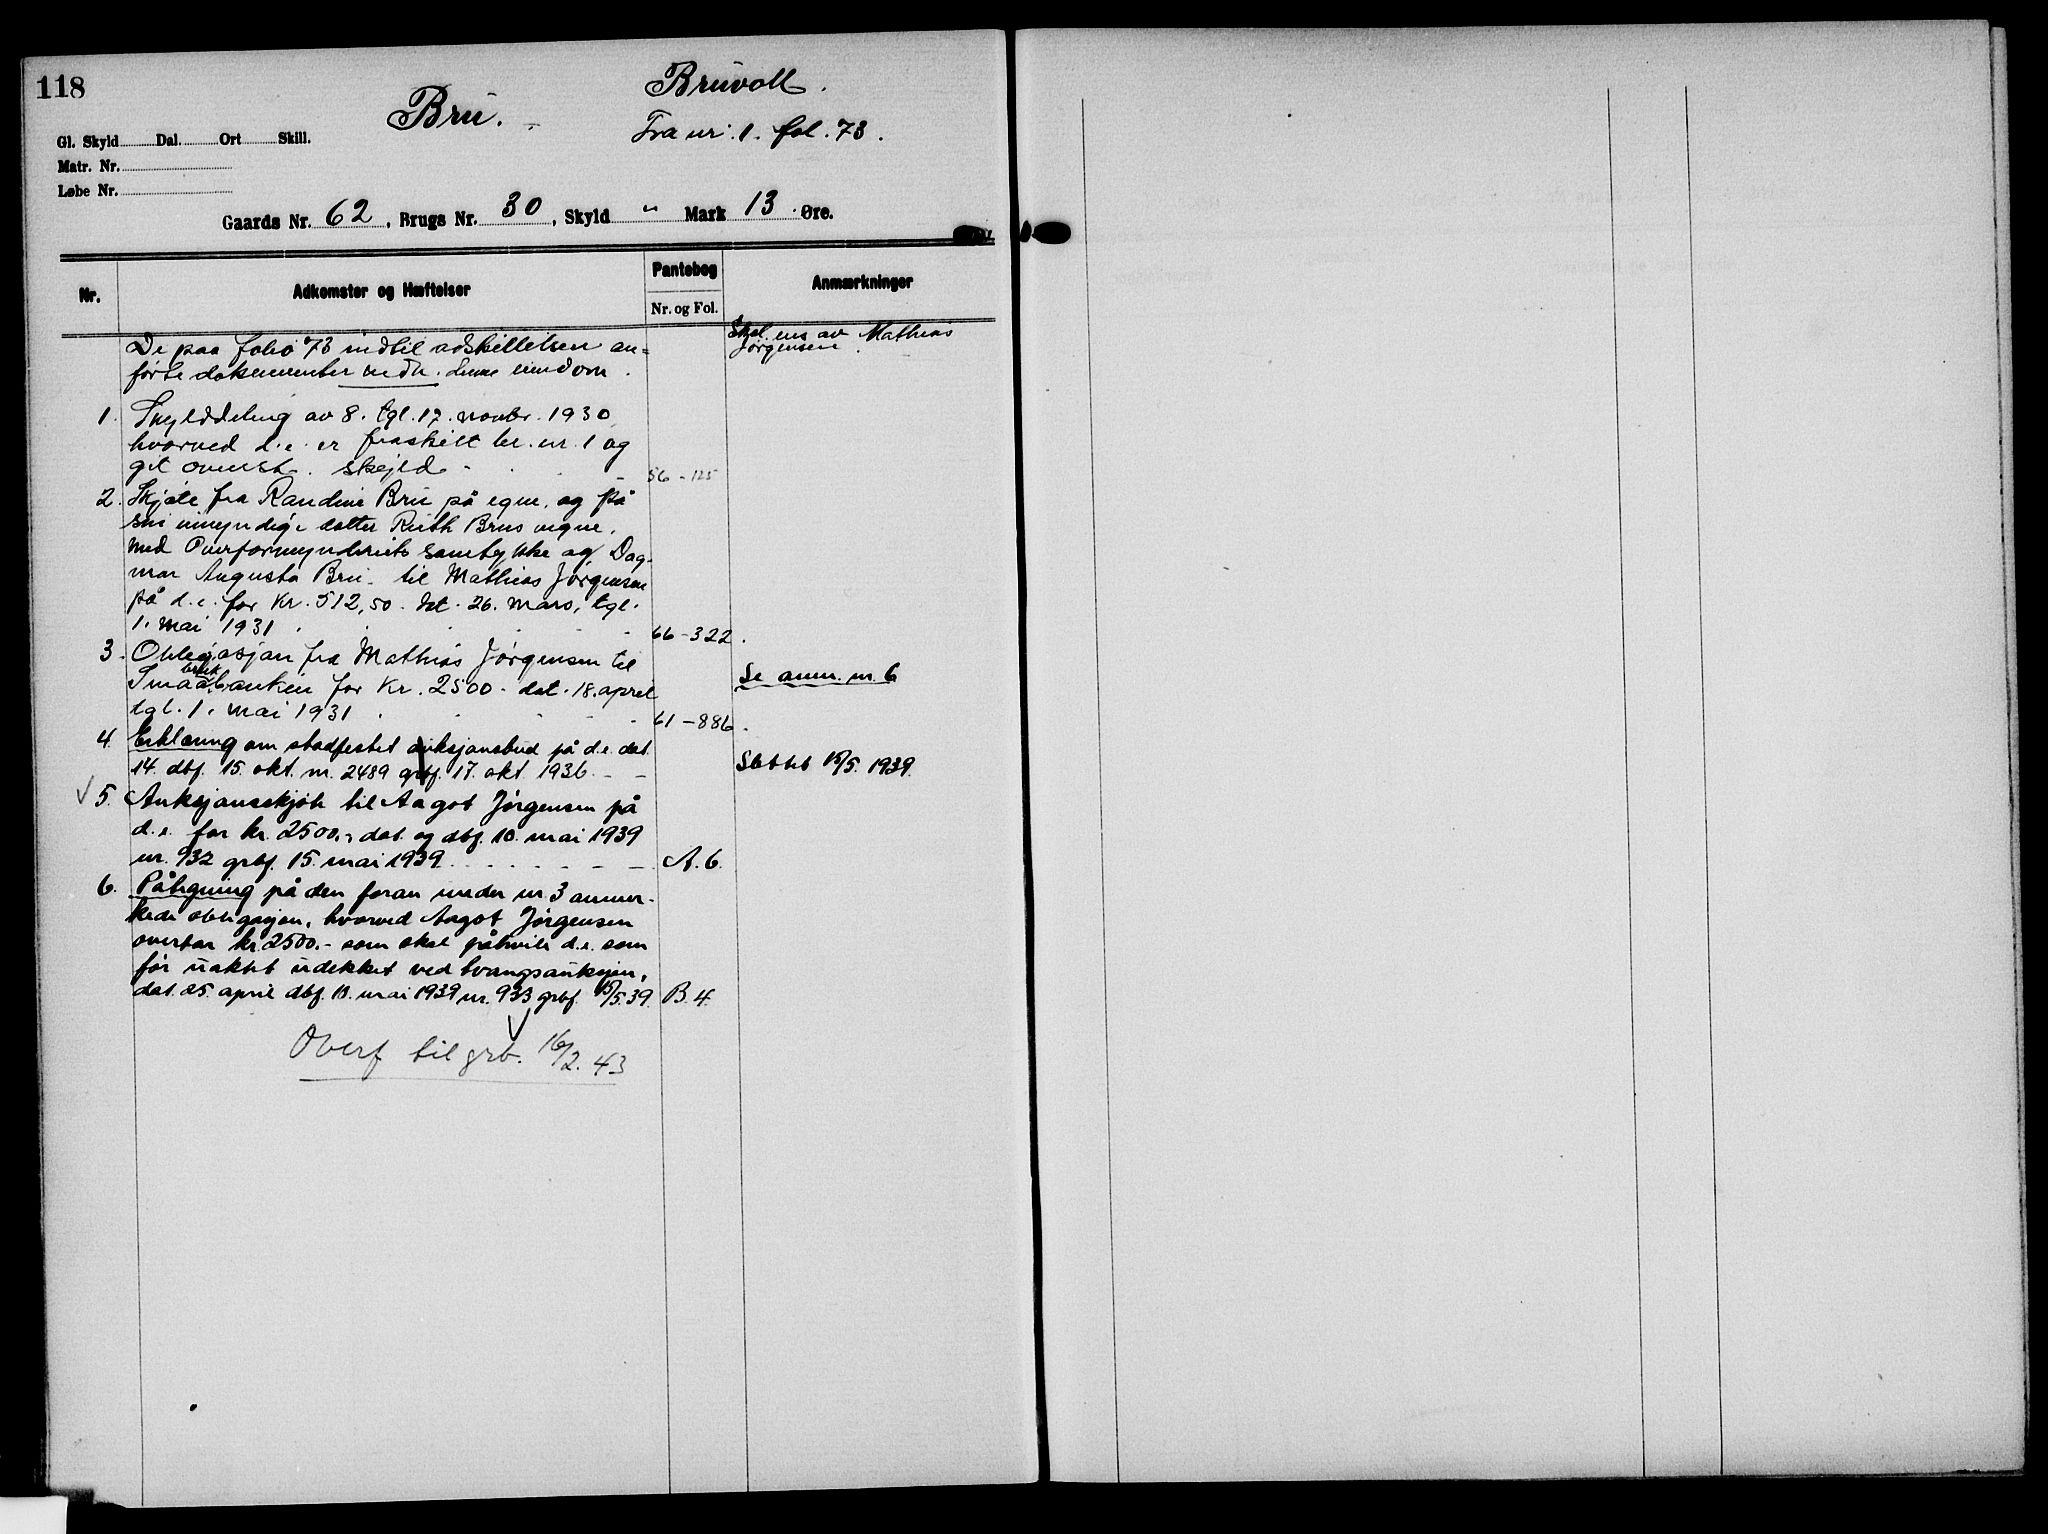 118
Bru.
Bruvoll.
Fra nr. 1. fol. 73.
Gl. Skyld Dal. Ort Skill.
Matr. Nr.
Løbe Nr.
Gaards Nr. 62, Brugs Nr. 30, Skyld " Mark 13 Øre.
Nr.
Adkomster og Hæftelser
Pantebog
Nr. og Fol.
Anmærkninger
De paa folio 73 indtil adskillelsen an-
førte dokumenter vedr. denne eiendom.
av Mathias
Jørgensen.
1. Skylddeling av 8. tgl. 17. novbr. 1930
hvorved d.e. er fraskilt br. nr. 1 og
git ovenst. skyld
56 - 125
2. Skjøte fra Randine Bru på egne, og på
sin umyndige datter Ruth Brus vegne,
med Overformynderiets samtykke og Dag-
mar Augusta Bru - til Mathias Jørgensen
på d.e. for kr. 512,50. dat. 26. mars, tgl.
1. mai 1931
66 - 322.
3. Obligasjon fra Mathias Jørgensen til
bruk
Småbanken for kr. 2500 - dat. 18. april
tgl. 1. mai 1931
61 - 886.
Se anm. nr. 6
4. Erklæring om stadfestet auksjonsbud på d.e. dat.
14. dbf. 15. okt. nr. 2489 grbf. 17. okt. 1936
Slettet 15/5. 1939.
✓ 5. Auksjonsskjøte til Aagot Jørgensen på
d.e. for kr. 2500.-, dat. og dbf. 10. mai 1939
nr. 932 grbf. 15. mai 1939
A. 6.
6. Påtegning på den foran under nr. 3 anmer-
kede obligasjon, hvorved Aagot Jørgensen
overtar kr. 2500.- som skal påhvile d.e. som
før uaktet udekket ved tvangsauksjon,
dat. 25. april dbf. 10. mai 1939 nr. 933 grbf. 15/5. 39.
B. 4.
Overf til grb. 16/2. 43